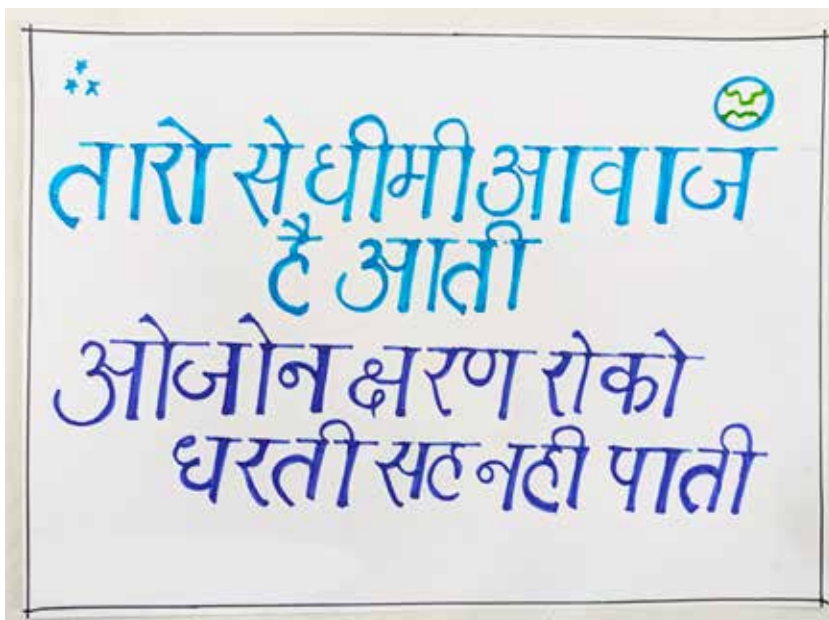 तारो से धीमी आवाज
है आती
ओजोन क्षरण रोको
धरती सह नही पाती